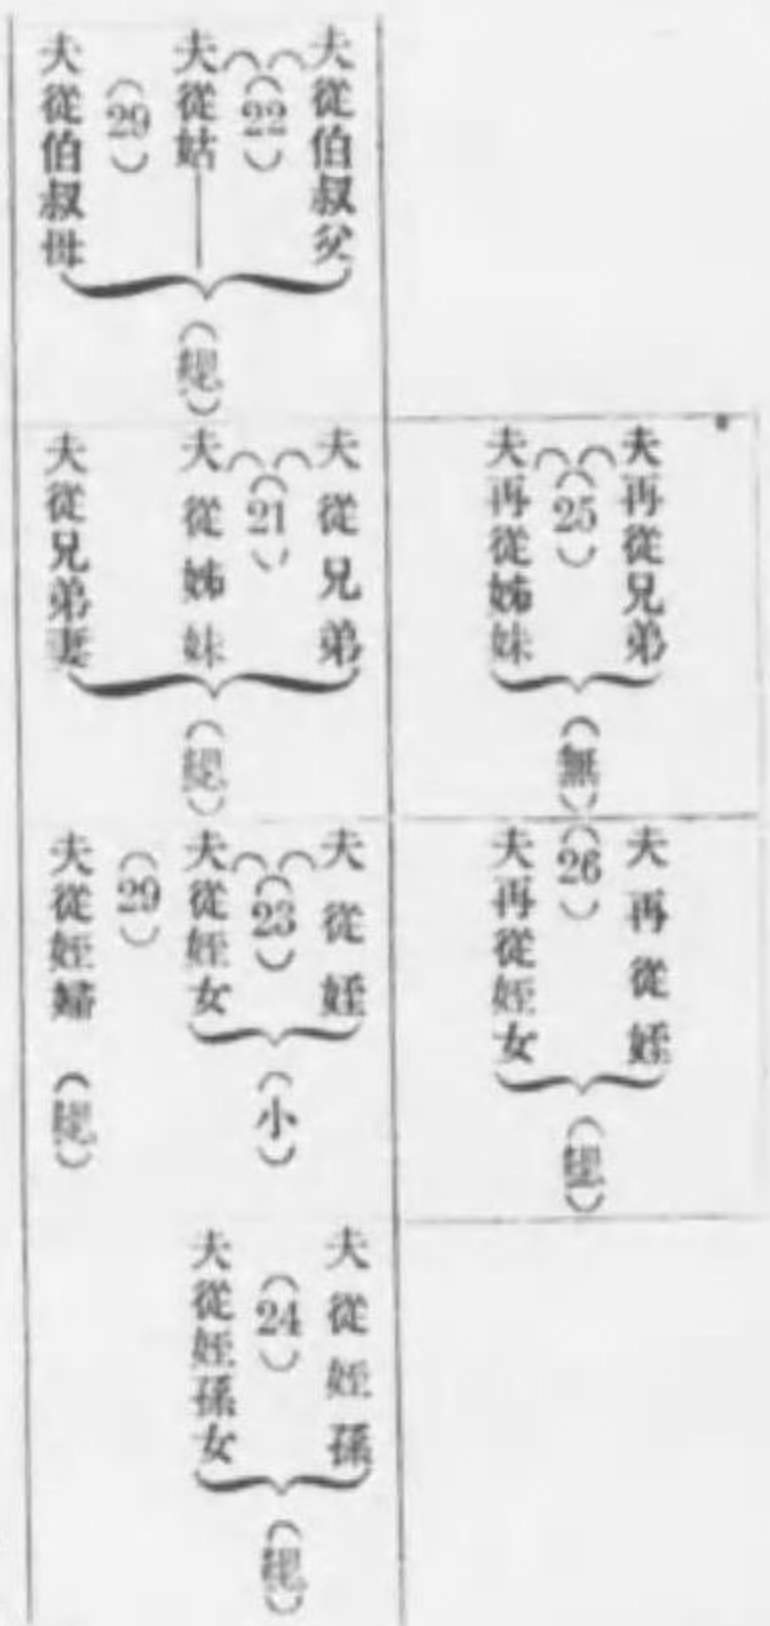 夫再從兄弟
(25)
夫再從姊妹
(無)
夫再從姪
(26)
夫再從姪女
(緦)
夫從伯叔父
(22)
夫從姑
(29)
夫從伯叔母
(緦)
夫從兄弟
(21)
夫從姊妹
夫從兄弟妻
(緦)
夫從姪
(23)
夫從姪女
(小)
(29)
夫從姪婦
(緦)
夫從姪孫
(24)
夫從姪孫女
(緦)